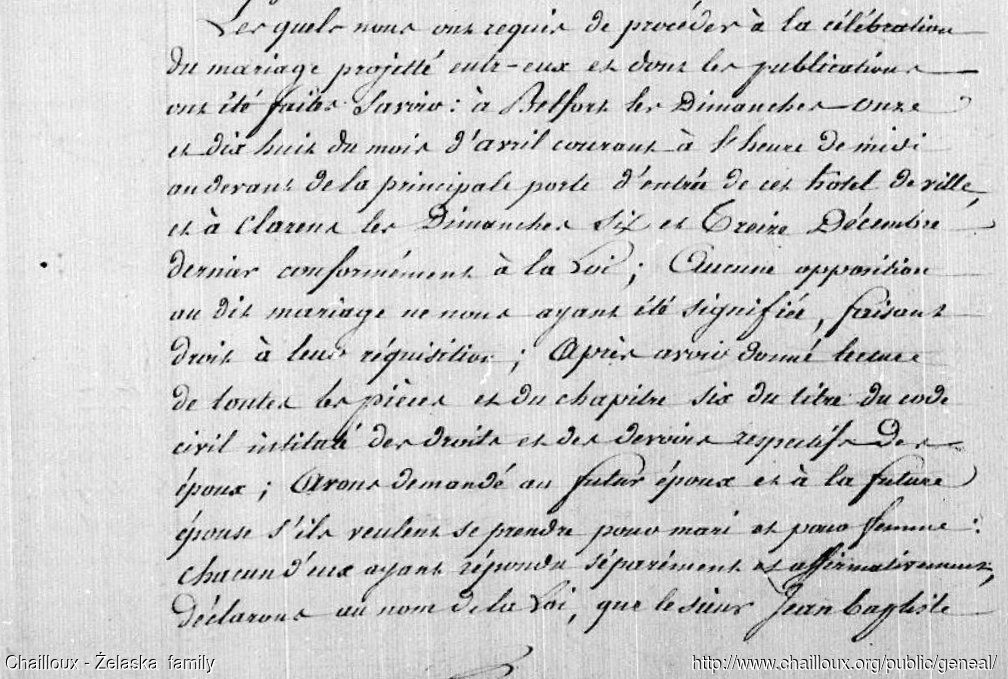 Les quels nous ont requis de procéder à la célébration
du mariage projetté entr-eux et dont les publications
ont été faites savoir : à Belfort les Dimanches onze
et dix huit du mois d'avril courant à l'heure de midi
au devant de la principale porte d'entrée de cet hotel de ville,
et à Clarens les Dimanches six et Treize Décembre
dernier conformément à la Loi ; Aucune opposition
au dit mariage ne nous ayant été signifiée, faisant
droit à leur réquisition ; Après avoir donné lecture
de toutes les pièces et du chapitre six du titre du code
civil intitulé des droits et des devoirs respectifs des
époux ; Avons demandé au futur époux et à la future
épouse s'ils veulent se prendre pour mari et pour femme :
chacun d'eux ayant répondu séparément et affirmativement,
déclarons au nom de la Loi, que le sieur Jean baptiste
Chailloux - Żelaska family
http://www.chailloux.org/public/geneal/